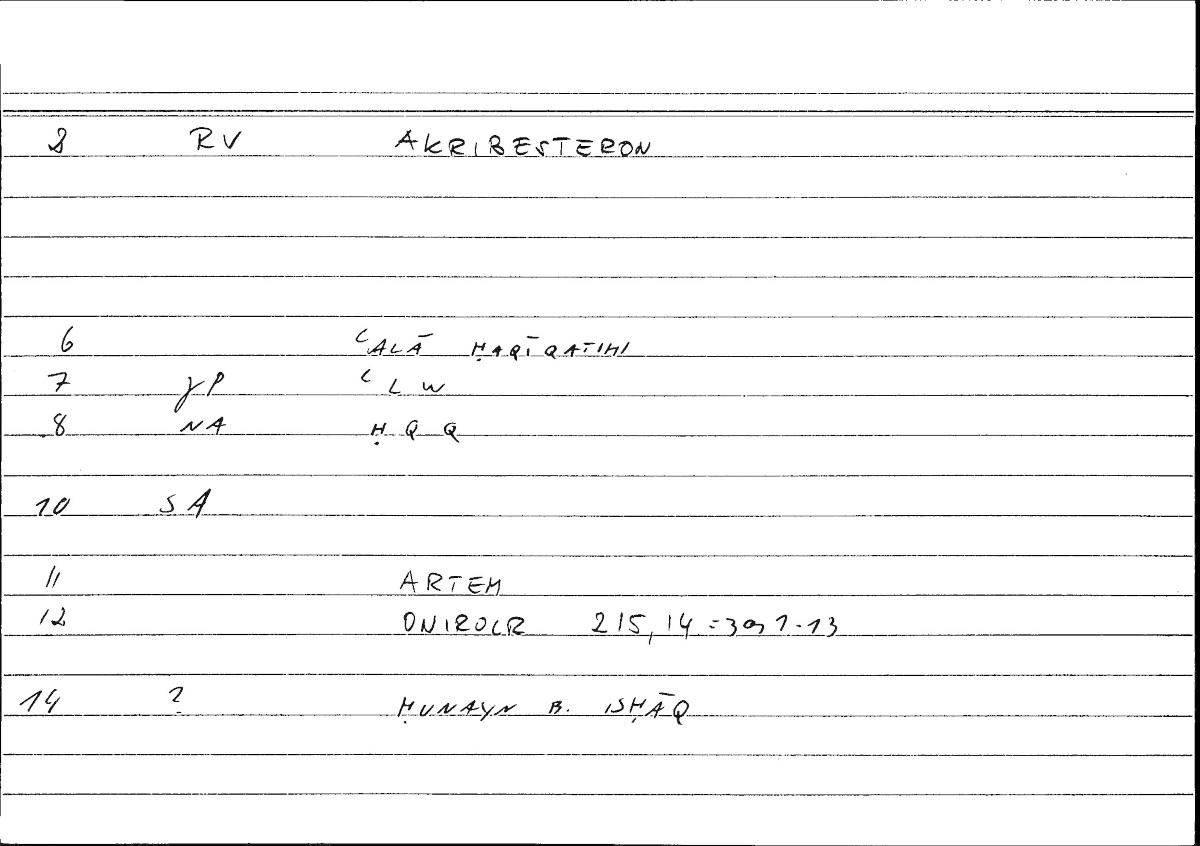 2 RV AKRIBESTERON
6 ʿALĀ ḤAQĪQATIHI
7 γP ʿ L W
8 NA Ḥ Q Q
10 SA
11 ARTEM
12 ONIROCR 215,14 =
14 ? ḤUNAYN B. ISḤĀQ